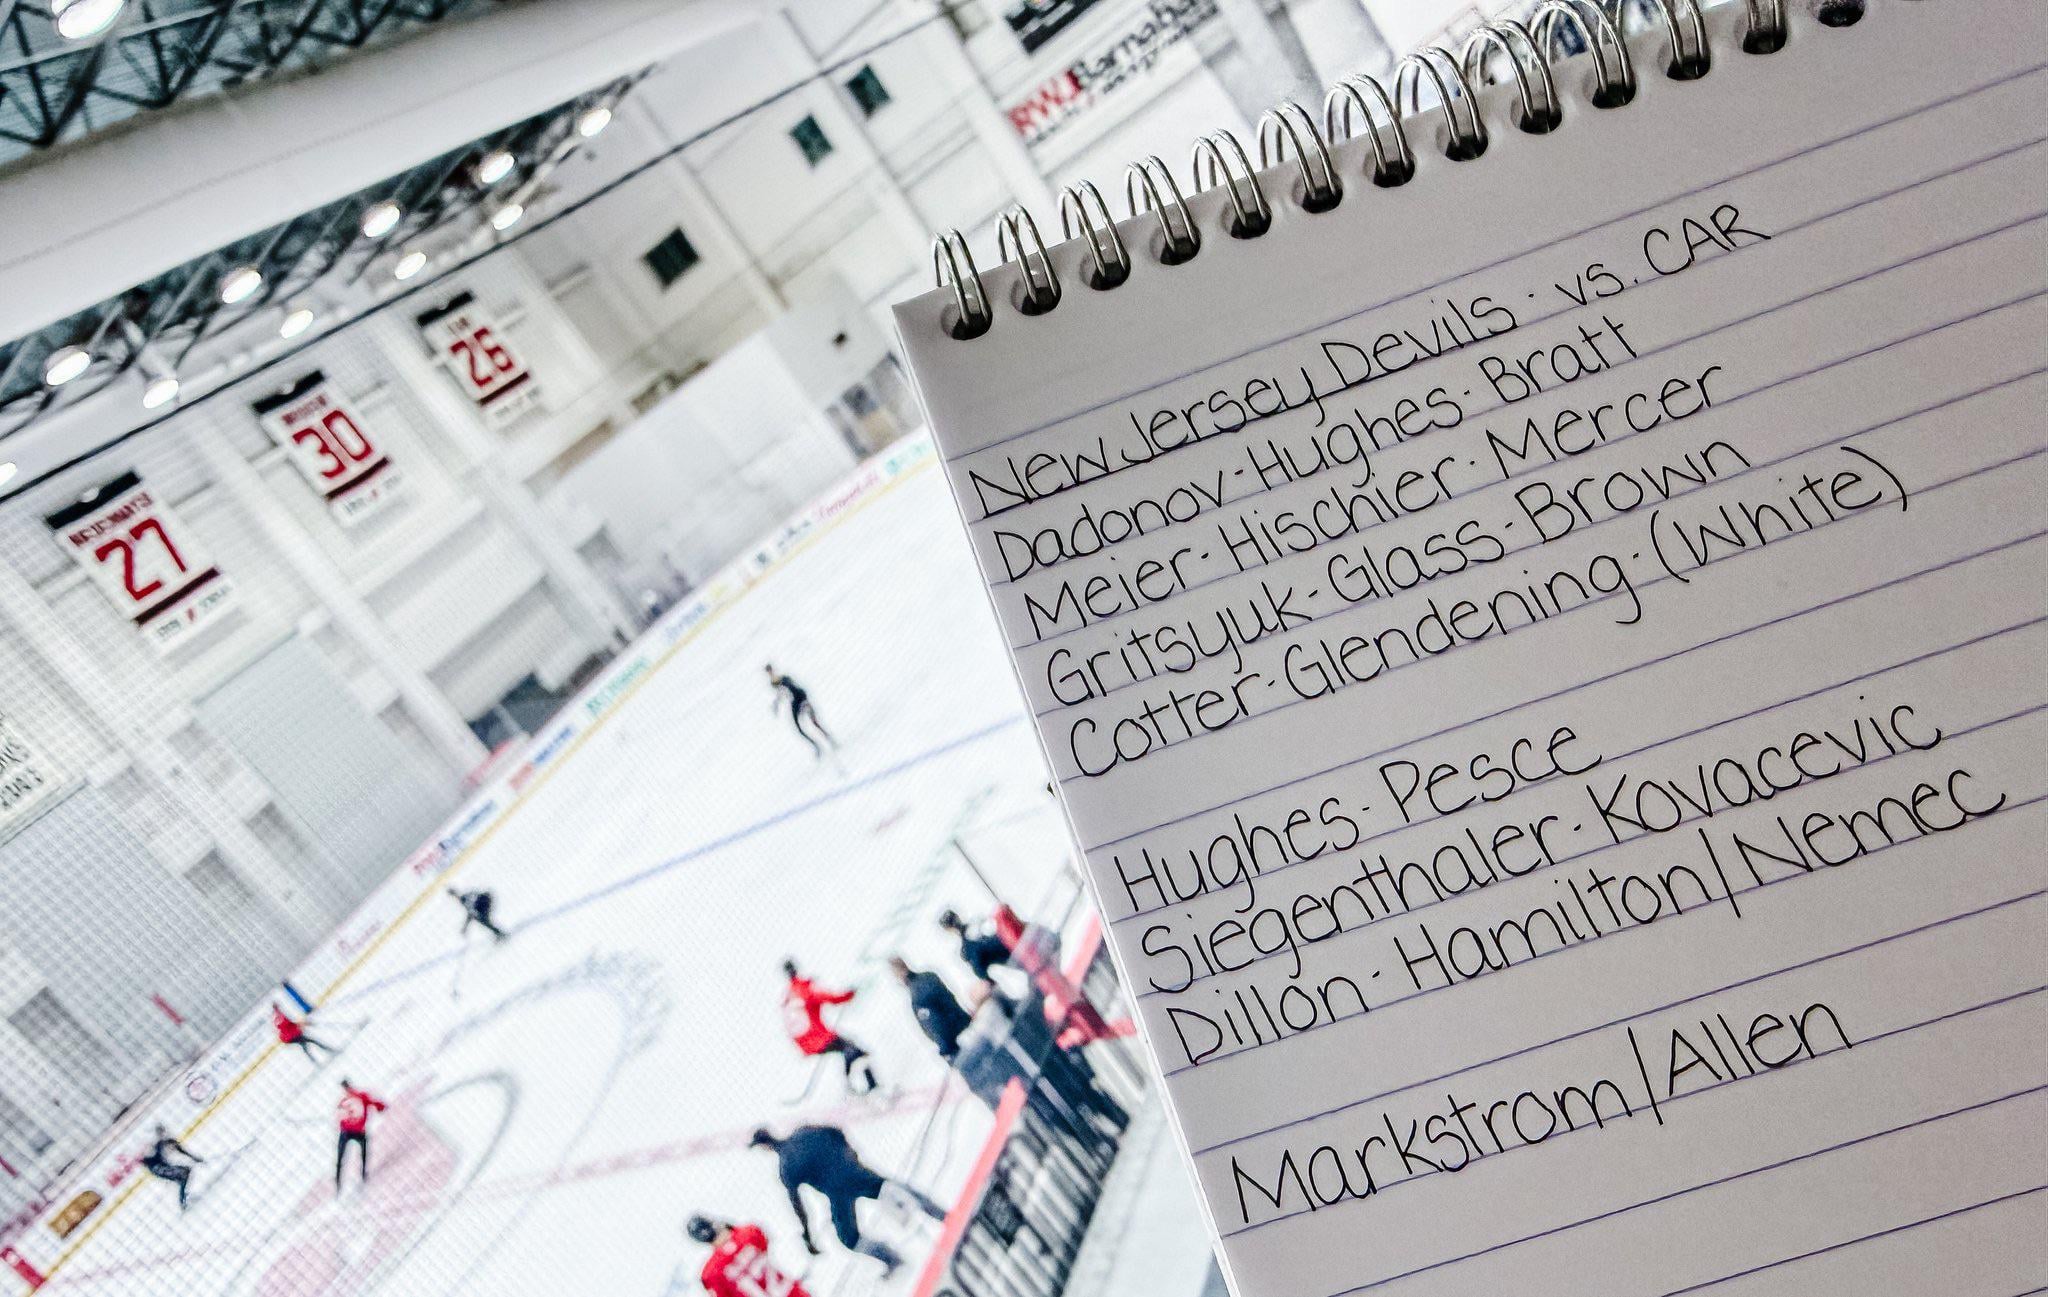 RWJ Barnabas
26
30
27
New Jersey Devils · vs. CAR
Dadonov · Hughes · Bratt
Meier · Hischier · Mercer
Gritsyuk · Glass · Brown
Cotter · Glendening · (White)
Hughes · Pesce
Siegenthaler · Kovacevic
Dillon · Hamilton/Nemec
Markstrom/Allen